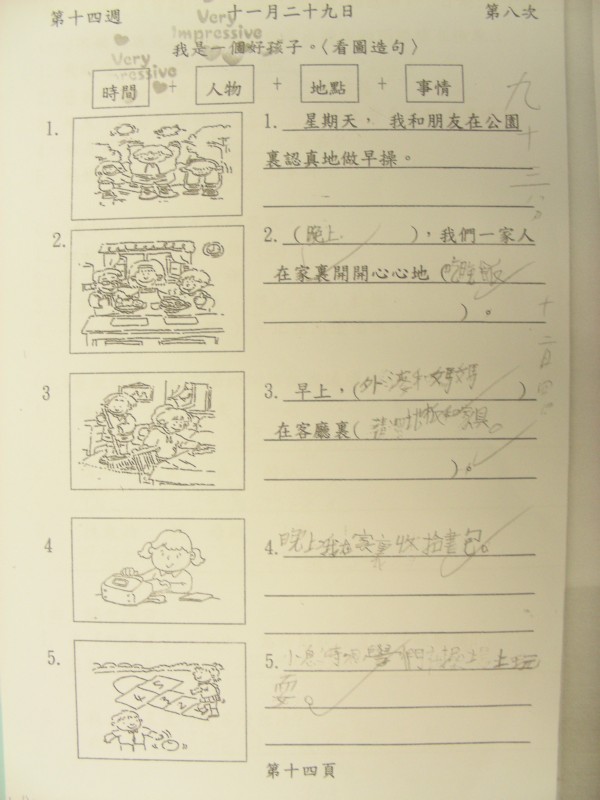 第十四週 十一月二十九日 第八次
Very Impressive
Very
我是一個好孩子。〈看圖造句〉
時間 + 人物 + 地點 + 事情
1. 1. 星期天, 我和朋友在公園
裏認真地做早操。
2. 2. (晚上 ),我們一家人
在家裏開開心心地 (吃晚飯
)。
3 3. 早上,(外婆和媽媽 )
在客廳裏( 清理地板和家具。
)。
4 4. 晚上我在家裏收拾書包。
5. 5. 小息時同學們在操場上玩
耍。
第十四頁